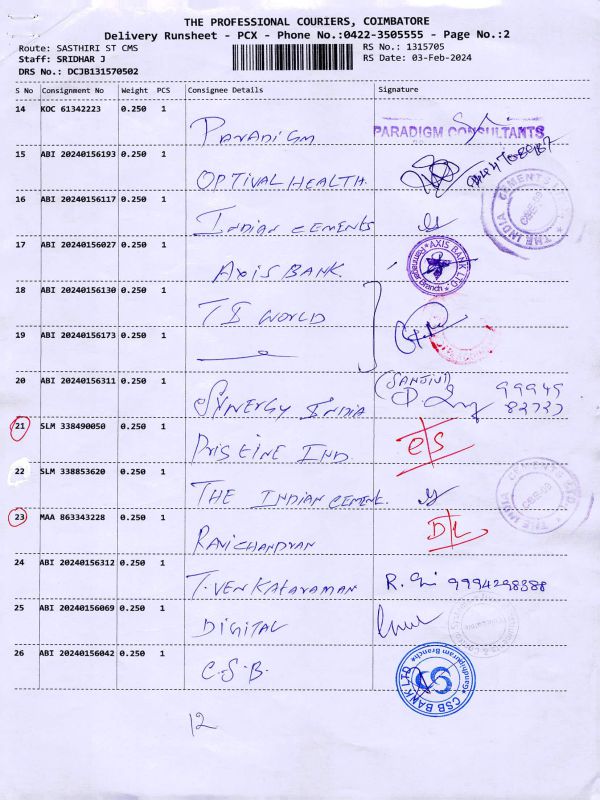 THE PROFESSIONAL COURIERS, COIMBATORE
Delivery Runsheet - PCX - Phone No.:0422-3505555 - Page No.:2
Route: SASTHIRI ST CMS
RS No.: 1315705
Staff: SRIDHAR J
RS Date: 03-Feb-2024
DRS No.: DCJB131570502
S No Consignment No Weight PCS Consignee Details Signature
14 KOC 61342223 0.250 1
PARADIGM
PARADIGM CONSULTANTS
15 ABI 20240156193 0.250 1
OPTIVAL HEALTH
16 ABI 20240156117 0.250 1
INDIAN CEMENTS
THE INDIA CEMENTS LTD
CBE-09
17 ABI 20240156027 0.250 1
AXIS BANK
AXIS BANK LTD
Ramnagar Branch
18 ABI 20240156130 0.250 1
T I WORLD
19 ABI 20240156173 0.250 1
20 ABI 20240156311 0.250 1
SYNERGY INDIA
(SANJIVI)
21 SLM 338490050 0.250 1
PRISTINE IND.
22 SLM 338853620 0.250 1
THE INDIAN CEMENT.
THE INDIA CEMENTS LTD
CBE-09
23 MAA 863343228 0.250 1
RAVICHANDRAN
D/L
24 ABI 20240156312 0.250 1
T. VENKATARAMAN
9994298388
25 ABI 20240156069 0.250 1
DIGITAL
26 ABI 20240156042 0.250 1
C.S.B.
CSB BANK LTD
Gandhipuram Branch
12